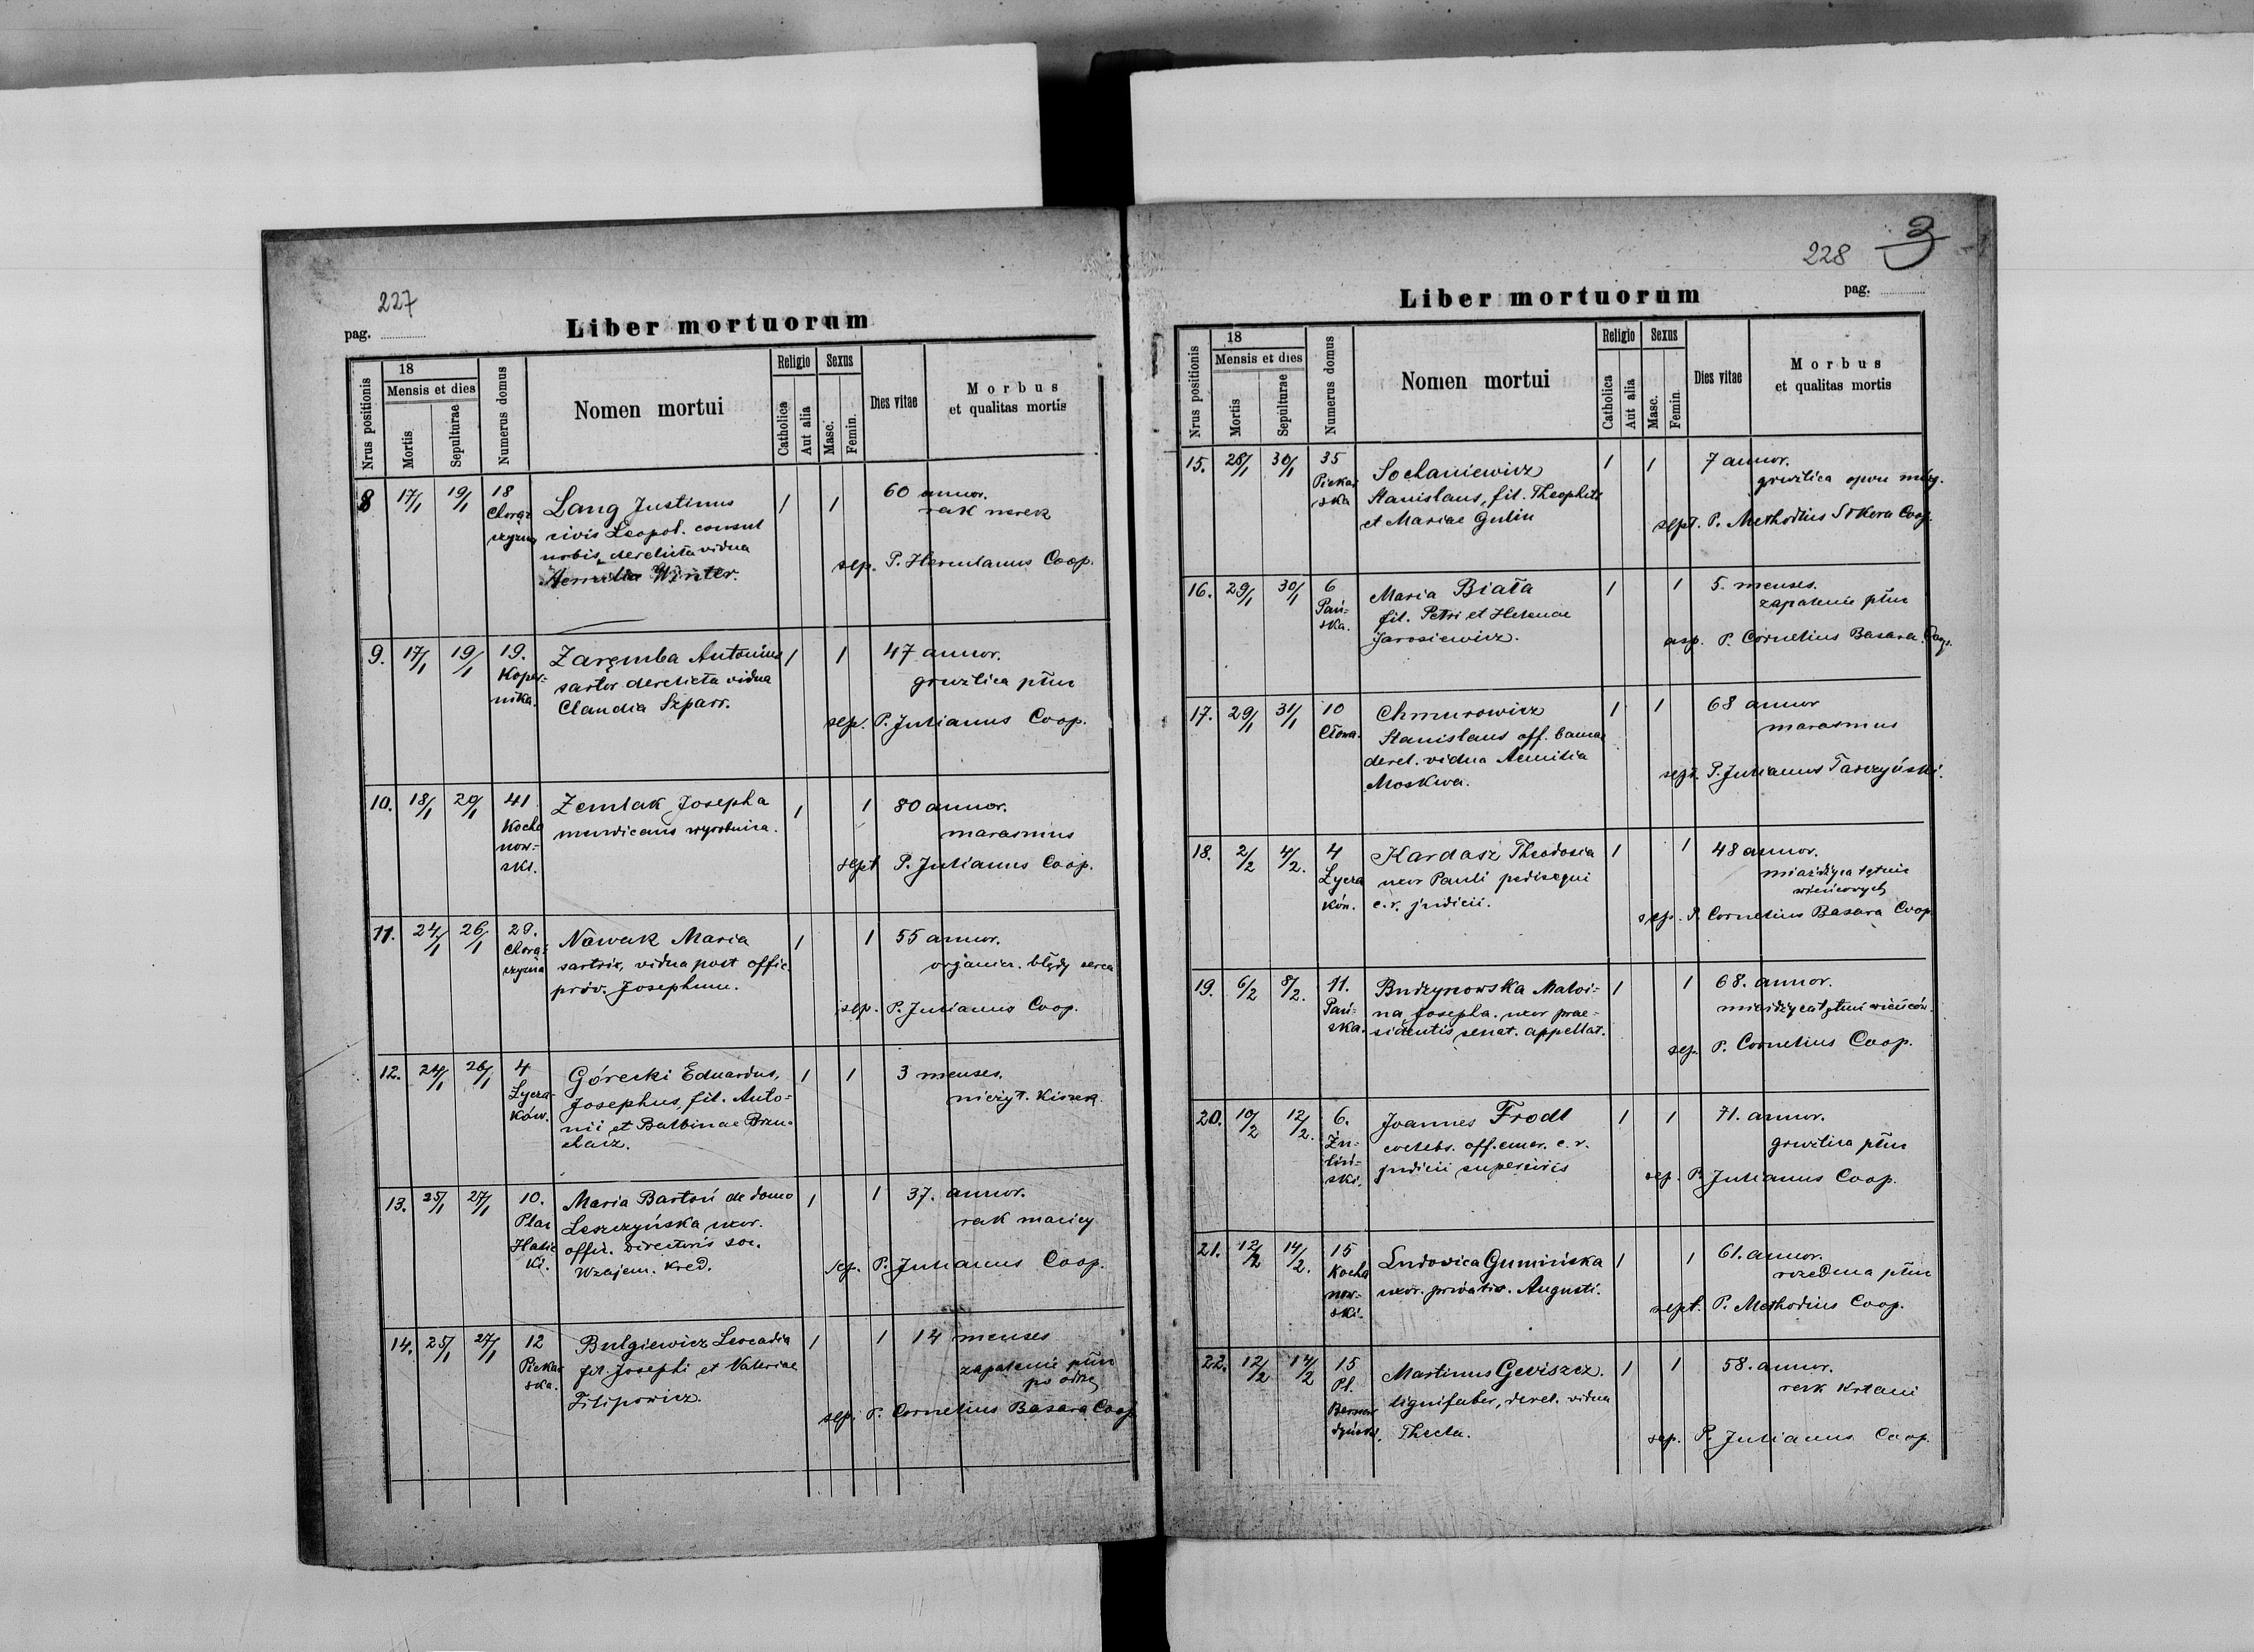 227
pag.
Liber mortuorum
Nrus positionis
18
Mensis et dies
Mortis
Sepulturae
Numerus domus
Nomen mortui
Religio
Catholica
Aut alia
Sexus
Masc.
Femin.
Dies vitae
Morbus
et qualitas mortis
8 17/1 19/1 18 Lang Justinus 1 1 60 annor.
Chorąż
szyzna civis Leopol. consul rak nerek
urbis, derelicta vidua
Aemilia Winter. sep. P. Herculanus Coop.
9. 17/1 19/1 19. Zaręmba Antonius 1 1 47 annor.
Koper-
nika. sartor derelicta vidua gruźlica płuc
Claudia Szparr.
sep. P. Julianus Coop.
10. 18/1 20/1 41 Zemlak Josepha 1 1 80 annor.
Kocha
now-
ski. mendicans wyrobnica. marasmus
sept P. Julianus Coop.
11. 24/1 26/1 29. Nowak Maria 1 1 55 annor.
Chorą-
szyzna sartrix, vidua post offic. organicz. błędy serca
priv. Josephum.
sep. P. Julianus Coop.
12. 24/1 26/1 4 Górecki Eduardus, 1 1 3 menses.
Łycza-
ków. Josephus, fil. Anto- nieżyt. Kiszek
nii et Balbinae Brzu-
chacz.
13. 25/1 27/1 10. Maria Bartoń de domo 1 1 37. annor.
Plac
Halic
ki. Leszczyńska uxor. rak macicy
offic. directoris soc.
Wzajem. Kred. sep. P. Julianus Coop.
14. 25/1 27/1 12 Bulgiewicz Leocadia 1 1 14 menses
Piekar
ska. fil. Josephi et Valeriae zapalenie płuc
Filipowicz. po odrze
sep. P. Cornelius Basara Coop
228
3
Liber mortuorum
pag.
Nrus positionis
18
Mensis et dies
Mortis
Sepulturae
Numerus domus
Nomen mortui
Religio
Catholica
Aut alia
Sexus
Masc.
Femin.
Dies vitae
Morbus
et qualitas mortis
15. 28/1 30/1 35 Sochaniewicz 1 1 7 annor.
Piekar
ska Stanislaus, fil. Theophili gruźlica opon mózg.
et Mariae Gulin
sept. P. Methodius Sikora Coop.
16. 29/1 30/1 6 Maria Biała 1 1 5. menses.
Pań-
ska. fil. Petri et Helenae zapalenie płuc
Jarosiewicz.
asp. P. Cornelius Basara. Coop.
17. 29/1 31/1 10 Chmurowicz 1 1 68 annor
Cłowa. Stanislaus off. marasmus
derel. vidua Aemilia
Moskwa. sept. P. Julianus Tarczyński.
18. 2/2 4/2. 4 Kardasz Theodosia 1 1 48 annor.
Łycza
ków. uxor Pauli pedisequi miażdżyca tętnic
c. r. judicii. wieńcowych
sep. P. Cornelius Basara Coop
19. 6/2 8/2. 11. Budzynowska Malwi- 1 1 68. annor.
Pań-
ska. na, Josepha. uxor prae- miażdżyca tętnic wieńców.
sidentis senat. appellat.
sep. P. Cornelius Coop.
20. 10/2 12/2. 6. Joannes Frodl 1 1 71. annor.
Zu-
liń-
ski. coelebs. off. emer. c. r. gruźlica płuc
judicii superioris
sep. P. Julianus Coop.
21. 12/2 14/2. 15 Ludovica Gumińska 1 1 61. annor.
Kocha
now-
ski. uxor. privatis. Augusti. rozedma płuc
sept. P. Methodius Coop.
22. 12/2 14/2 15 Martinus Geviszcz. 1 1 58. annor.
Pl.
Bernar
dyński. lignifaber, derel. vidua rak krtani
Thecla.
sep. P. Julianus Coop.